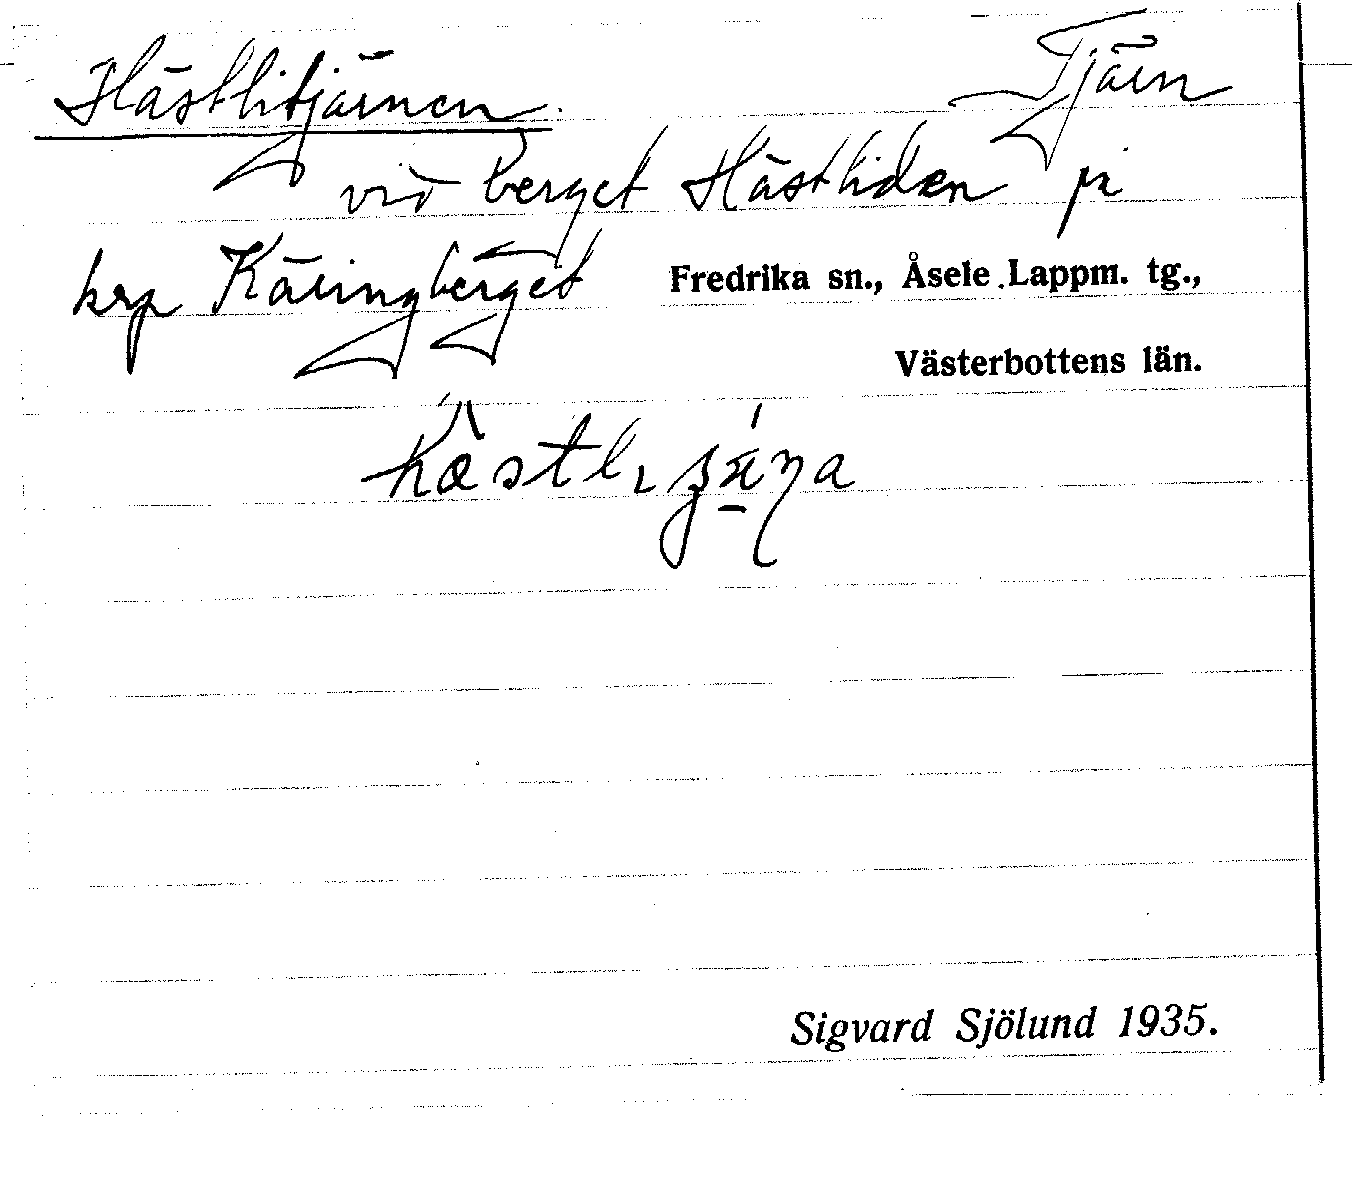 Hästlitjärnen Tjärn
vid berget Hästliden på
krp Käringberget Fredrika sn., Åsele Lappm. tg.,
Västerbottens län.
Sigvard Sjölund 1935.